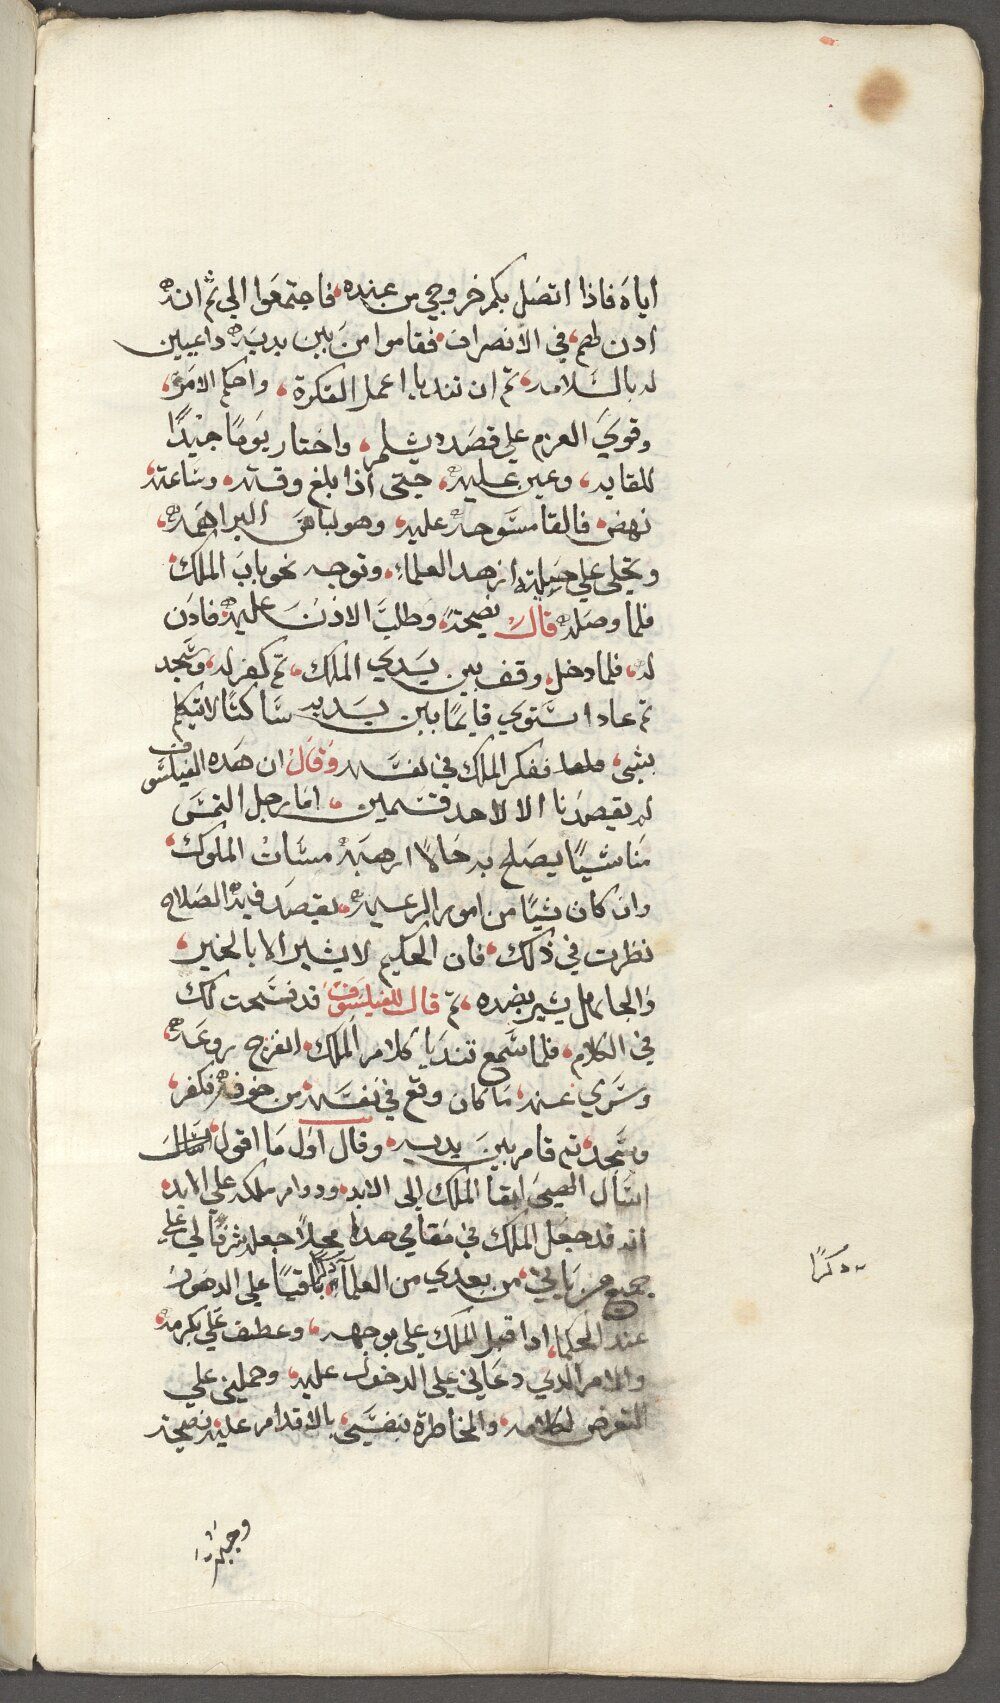 اياه فاذا اتصل بكم خروجي من عنده فاجتمعوا الي ثم انه
ادن لهم في الانصراف فقاموا من بين يديه داعيين
له بالسلامه ثم ان تنديا اعمل الفكرة واحكم الامر
وقوي العزم علي قصده يشلم واختار يومًا جيدًا
للقايه وعين عليه حتى اذا بلغ وقته وساعته
نهض فالقا مسوحه عليه وهو لباس البراهمه
وتحلي علي حيلة ازهد العلماء وتوجه نحو باب الملك
فلما وصله قال نصيحة وطلب الاذن عليه فادن
له فلما دخل وقف بين يدي الملك ثم كفر له وسجد
ثم عاد استوي قايمًا بين يديه ساكتًا لا يتكلم
بشي ففكر الملك في نفسه وقال ان هده الفيلسوف
لم يقصدنا الا لاحد قسمين اما رجل التمس
منا شيًا يصلح به حالا ارهبة مسات الملوك
وان كان شيًا من امور الرعيه يقصد فيه الصلاح
نظرت في ذلك فان الحكيم لا يشير الا بالخير
والجاهل يشير بضده ثم قال للفيلسوف قد فسحت لك
في الكلام فلما سمع تنديا كلام الملك انفرج روعه
وسري عنه ما كان وقع في نفسه من خوفه فكفر
وسجد ثم قام بين يديه وقال اول ما اقول
اسال الهي ابقا الملك الى الابد ودوام ملكه علي الابد
انه قد جعل الملك في مقامي هدا محلًا جعله شرفًا لي علي
جميع من ياتي من بعدي من العلماء ذكرا باقيًا علي الدهور
عند الحكما ادا قبل الملك علي بوجهه وعطف علي بكرمه
والامر الدي دعاني علي الدخول عليه وحملني علي
التعرض لكلامه والمخاطرة بنفسي بالاقدام عليه نصيحة
ذكرًا